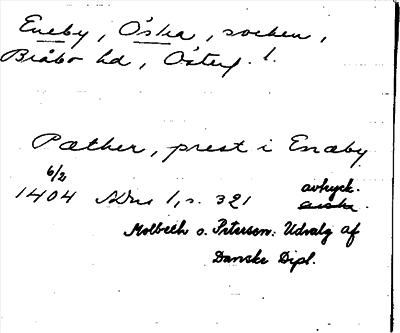 Eneby, Östra, socken,
Bråbo hd, Österg. l.
Pæther, prest i Enæby
6/2
1404 s. 321 avtryck.
Molbech o. Petersen: Udvalg af
Danske Dipl.